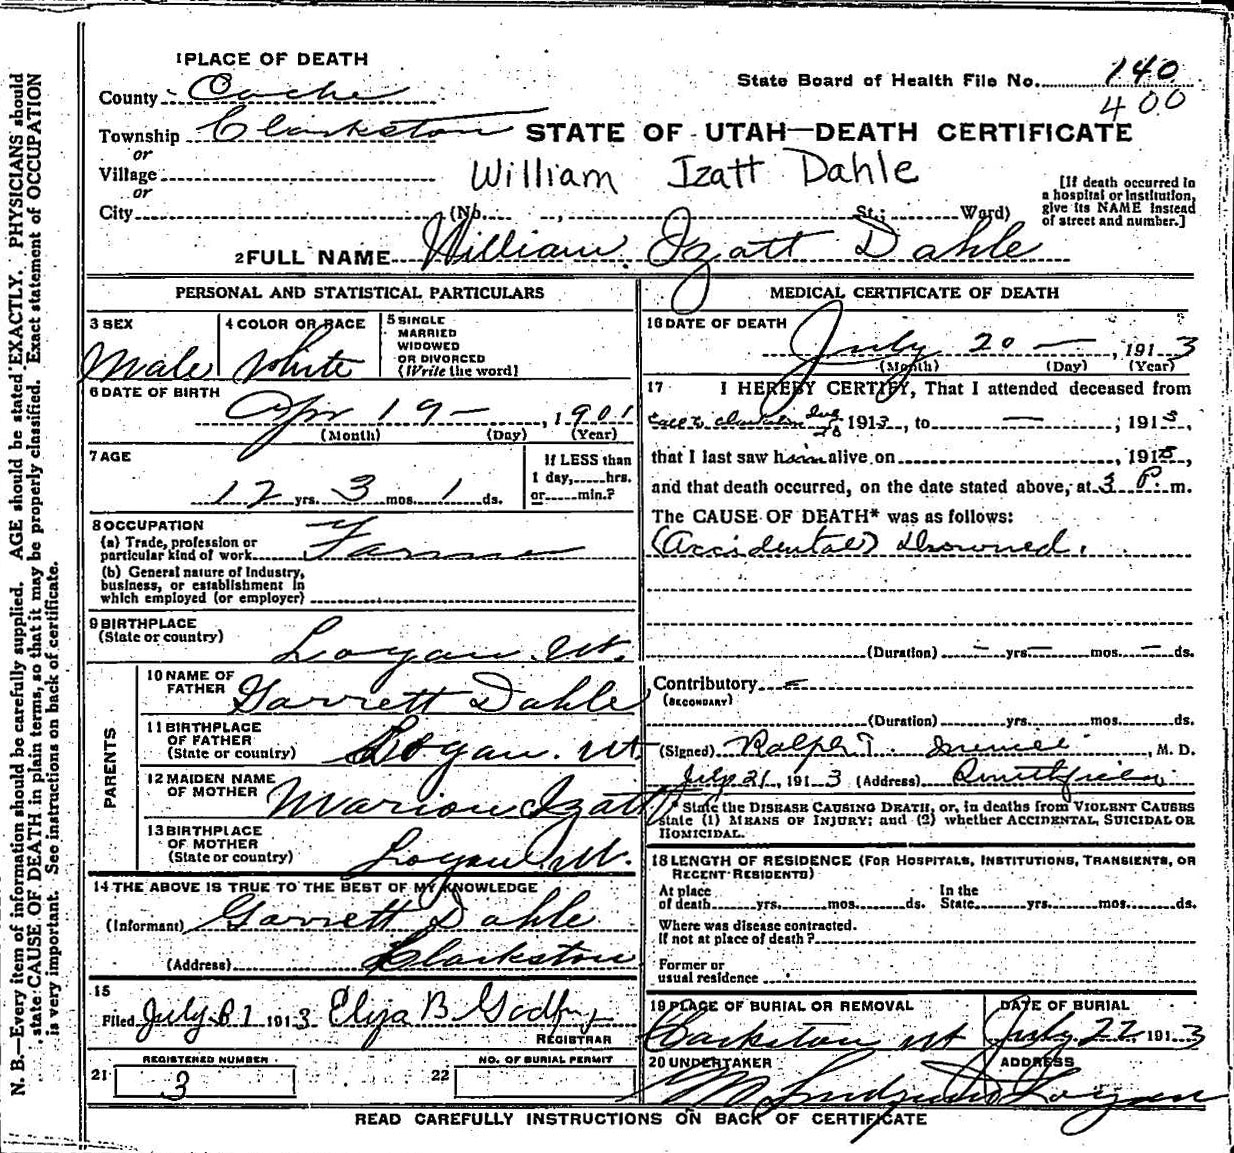 1 PLACE OF DEATH
State Board of Health File No. 140
400
County Cache
Township Clarkston
STATE OF UTAH—DEATH CERTIFICATE
or
Village
William Izatt Dahle
or
City (No. , St.; Ward)
[If death occurred in a hospital or institution, give its NAME instead of street and number.]
2 FULL NAME William Izatt Dahle
PERSONAL AND STATISTICAL PARTICULARS
3 SEX
Male
4 COLOR OR RACE
White
5 SINGLE MARRIED WIDOWED OR DIVORCED (Write the word)
6 DATE OF BIRTH
Apr 19 — , 1901
(Month) (Day) (Year)
7 AGE
12 yrs. 3 mos. 1 ds.
If LESS than 1 day, hrs. or min.?
8 OCCUPATION
(a) Trade, profession or particular kind of work Farmer
(b) General nature of Industry, business, or establishment in which employed (or employer)
9 BIRTHPLACE
(State or country) Logan Ut.
PARENTS
10 NAME OF FATHER Garrett Dahle
11 BIRTHPLACE OF FATHER (State or country) Logan. Ut
12 MAIDEN NAME OF MOTHER Marion Izatt
13 BIRTHPLACE OF MOTHER (State or country) Logan Ut.
14 THE ABOVE IS TRUE TO THE BEST OF MY KNOWLEDGE
(Informant) Garrett Dahle
(Address) Clarkston
15
Filed July 1913 Eliza B Godfrey
REGISTRAR
REGISTERED NUMBER
21 3
NO. OF BURIAL PERMIT
22
MEDICAL CERTIFICATE OF DEATH
16 DATE OF DEATH
July 20 — , 1913
(Month) (Day) (Year)
17 I HEREBY CERTIFY, That I attended deceased from
1913, to — , 1913,
that I last saw him alive on , 191 ,
and that death occurred, on the date stated above, at 3 P. m.
The CAUSE OF DEATH* was as follows:
(Accidental) Drowned.
(Duration) — yrs — mos. — ds.
Contributory —
(SECONDARY)
(Duration) yrs. mos. ds.
(Signed) Ralph T. , M. D.
July 21, 1913 (Address) Smithfield
* State the DISEASE CAUSING DEATH, or, in deaths from VIOLENT CAUSES state (1) MEANS OF INJURY; and (2) whether ACCIDENTAL, SUICIDAL OR HOMICIDAL.
18 LENGTH OF RESIDENCE (FOR HOSPITALS, INSTITUTIONS, TRANSIENTS, OR RECENT RESIDENTS)
At place of death yrs. mos. ds. In the State yrs. mos. ds.
Where was disease contracted. If not at place of death?
Former or usual residence
19 PLACE OF BURIAL OR REMOVAL
Clarkston Ut
DATE OF BURIAL
July 22 1913
20 UNDERTAKER
ADDRESS
Logan
READ CAREFULLY INSTRUCTIONS ON BACK OF CERTIFICATE
N. B.—Every item of information should be carefully supplied. AGE should be stated EXACTLY. PHYSICIANS should
state CAUSE OF DEATH in plain terms, so that it may be properly classified. Exact statement of OCCUPATION
is very important. See instructions on back of certificate.